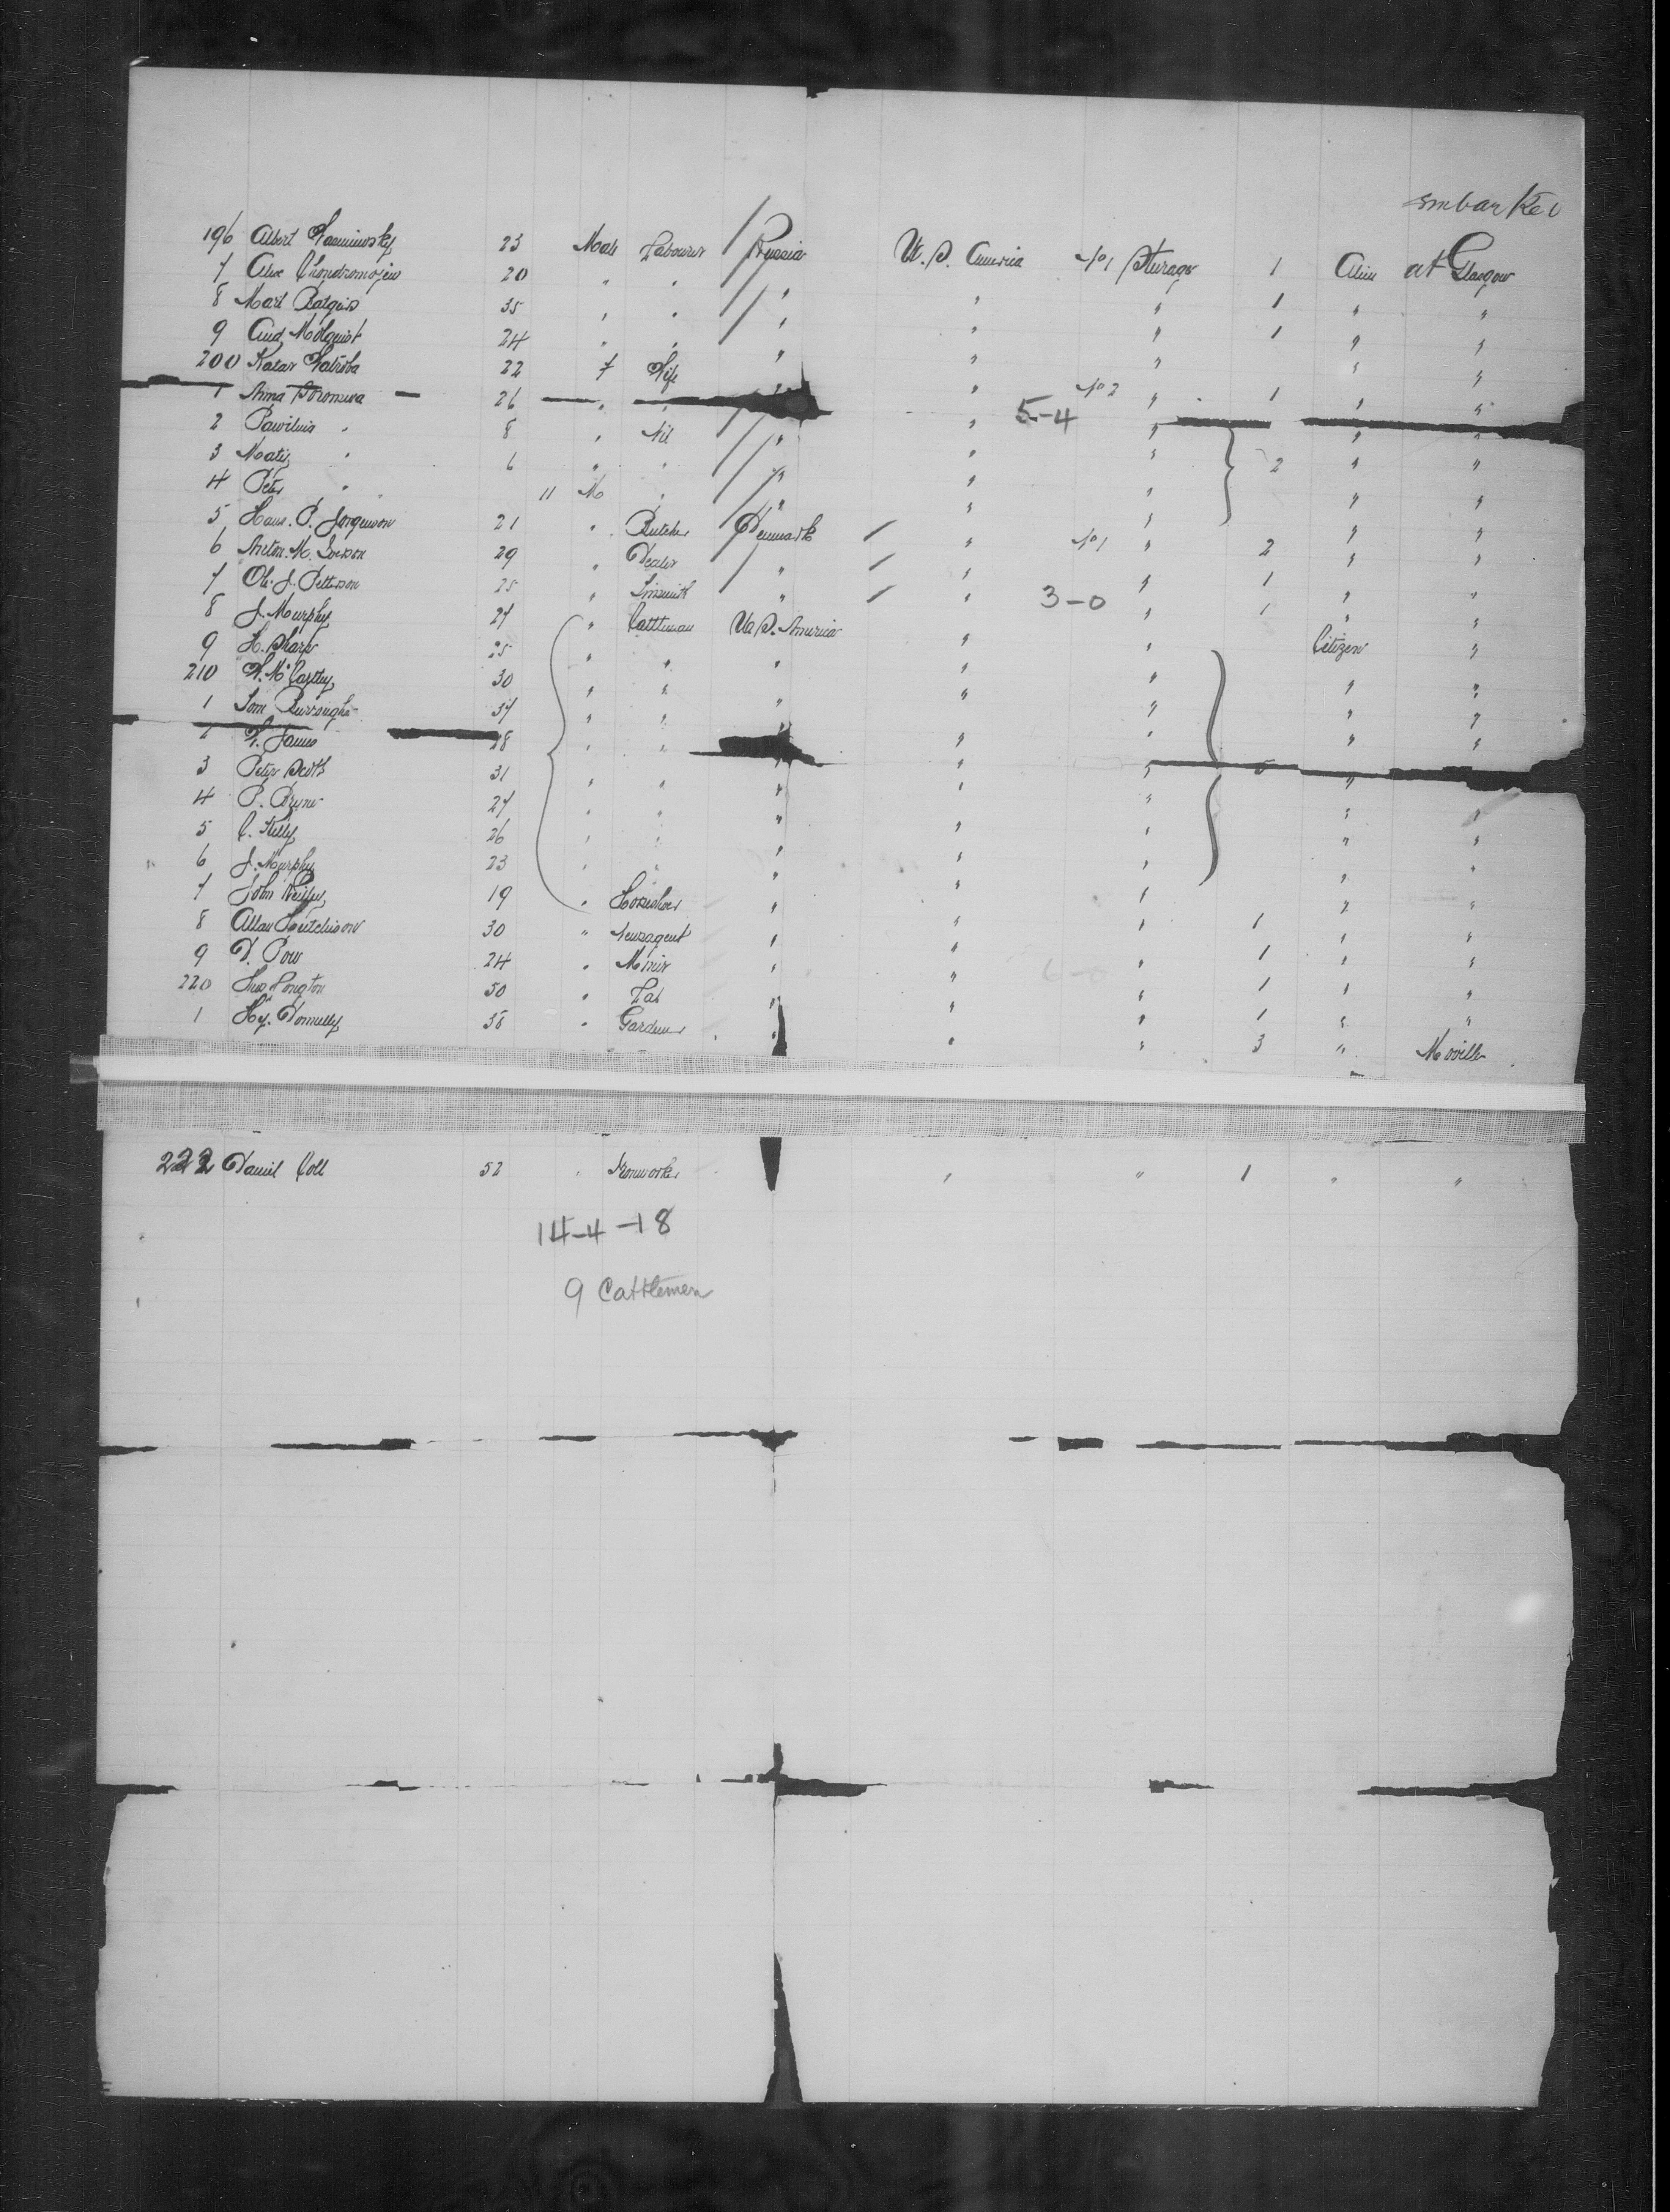 Embarked
196 Albert Kaminowsky 23 Male Labourer Russia U.S. America No 1 Steerage 1 Alien at Glasgow
7 Alex 20 " " " " " 1 " "
8 Mart 35 " " " " " 1 " "
9 Aug Molquist 24 " " " " " " "
200 Katar 22 f Wife " " No 2 " 1 " "
1 Anna 26 " " " 5-4 " " "
2 8 " Nil " " " 2 " "
3 Matis " 6 " " " " " " "
4 Peter " 11 M " " " " " "
5 Hans. P. Jorgenson 21 " Butcher Denmark " No 1 " 2 " "
6 Anton. M. 29 " Dealer " " " 1 " "
7 Ole. J. Petterson 25 " Tinsmith " " 3-0 " 1 " "
8 J. Murphy 27 " Cattleman U.S. America " " Citizen "
9 H. Sharp 25 " " " " " " "
210 W. McCartey 30 " " " " " " "
1 Tom Burroughs 37 " " " " " "
2 James 28 " " " " " 5 " "
3 Peter 31 " " " " " " "
4 P. Byrne 27 " " " " " " "
5 C. Kelly 26 " " " " " " "
6 J. Murphy 23 " " " " " " "
7 John Reilly 19 " Horseshoer " " " 1 " "
8 Allan Hutchison 30 " Newsagent " " " 1 " "
9 D. Pow 24 " Miner " " 6-0 " 1 " "
220 Thos Longton 50 " Lab " " " 1 " "
1 Hy. Donnelly 38 " Gardener " " " 3 " Moville
222 Daniel Coll 52 " Ironworker " " 1 " "
14-4-18
9 Cattlemen